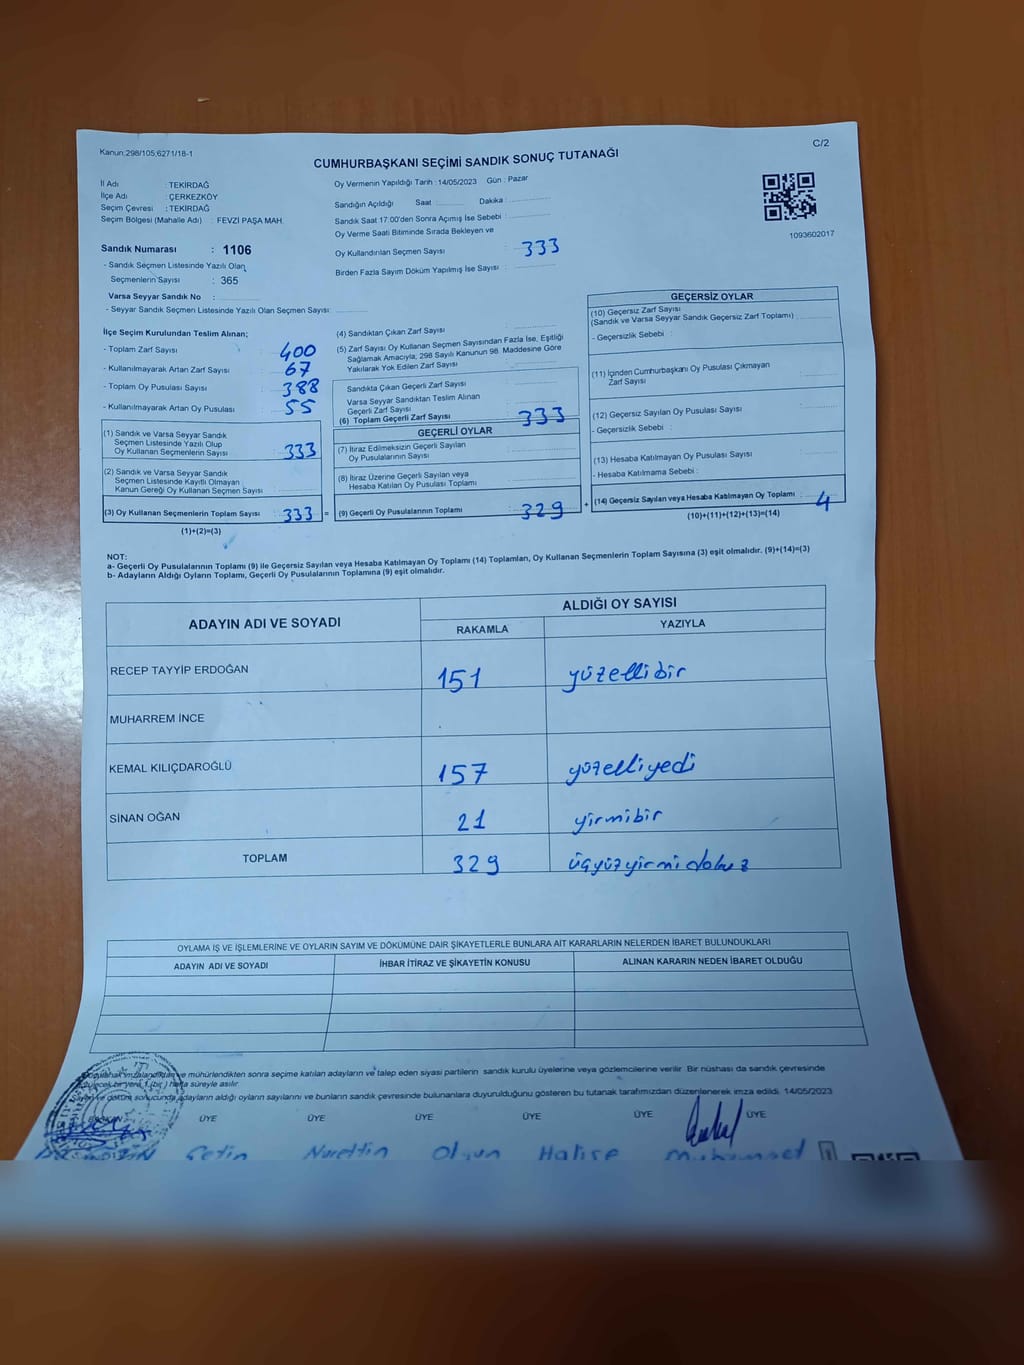 Kanun:298/105,6271/18-1
C/2
CUMHURBAŞKANI SEÇİMİ SANDIK SONUÇ TUTANAĞI
İl Adı : TEKİRDAĞ
İlçe Adı : ÇERKEZKÖY
Seçim Çevresi : TEKİRDAĞ
Seçim Bölgesi (Mahalle Adı) : FEVZİ PAŞA MAH.
Sandık Numarası : 1106
- Sandık Seçmen Listesinde Yazılı Olan
Seçmenlerin Sayısı : 365
Varsa Seyyar Sandık No :
- Seyyar Sandık Seçmen Listesinde Yazılı Olan Seçmen Sayısı:
Oy Vermenin Yapıldığı Tarih :14/05/2023 Gün : Pazar
Sandığın Açıldığı Saat Dakika :
Sandık Saat 17:00'den Sonra Açımış İse Sebebi :
Oy Verme Saati Bitiminde Sırada Bekleyen ve
Oy Kullandırılan Seçmen Sayısı : 333
Birden Fazla Sayım Döküm Yapılmış İse Sayısı :
1093602017
İlçe Seçim Kurulundan Teslim Alınan;
- Toplam Zarf Sayısı : 400
- Kullanılmayarak Artan Zarf Sayısı : 67
- Toplam Oy Pusulası Sayısı : 388
- Kullanılmayarak Artan Oy Pusulası : 55
(1) Sandık ve Varsa Seyyar Sandık
Seçmen Listesinde Yazılı Olup
Oy Kullanan Seçmenlerin Sayısı : 333
(2) Sandık ve Varsa Seyyar Sandık
Seçmen Listesinde Kayıtlı Olmayan
Kanun Gereği Oy Kullanan Seçmen Sayısı
(3) Oy Kullanan Seçmenlerin Toplam Sayısı : 333 =
(1)+(2)=(3)
(4) Sandıktan Çıkan Zarf Sayısı :
(5) Zarf Sayısı Oy Kullanan Seçmen Sayısından Fazla İse, Eşitliği
Sağlamak Amacıyla; 298 Sayılı Kanunun 98. Maddesine Göre
Yakılarak Yok Edilen Zarf Sayısı :
Sandıkta Çıkan Geçerli Zarf Sayısı :
Varsa Seyyar Sandıktan Teslim Alınan
Geçerli Zarf Sayısı
(6) Toplam Geçerli Zarf Sayısı : 333
GEÇERLİ OYLAR
(7) İtiraz Edilmeksizin Geçerli Sayılan
Oy Pusulasının Sayısı :
(8) İtiraz Üzerine Geçerli Sayılan veya
Hesaba Katılan Oy Pusulası Toplamı :
(9) Geçerli Oy Pusulalarının Toplamı : 329 +
GEÇERSİZ OYLAR
(10) Geçersiz Zarf Sayısı
(Sandık ve Varsa Seyyar Sandık Geçersiz Zarf Toplamı) :
- Geçersizlik Sebebi :
(11) İçinden Cumhurbaşkanı Oy Pusulası Çıkmayan
Zarf Sayısı :
(12) Geçersiz Sayılan Oy Pusulası Sayısı :
- Geçersizlik Sebebi :
(13) Hesaba Katılmayan Oy Pusulası Sayısı :
- Hesaba Katılmama Sebebi :
(14) Geçersiz Sayılan veya Hesaba Katılmayan Oy Toplamı : 4
(10)+(11)+(12)+(13)=(14)
NOT:
a- Geçerli Oy Pusulalarının Toplamı (9) ile Geçersiz Sayılan veya Hesaba Katılmayan Oy Toplamı (14) Toplamları, Oy Kullanan Seçmenlerin Toplam Sayısına (3) eşit olmalıdır. (9)+(14)=(3)
b- Adayların Aldığı Oyların Toplamı, Geçerli Oy Pusulalarının Toplamına (9) eşit olmalıdır.
ADAYIN ADI VE SOYADI
ALDIĞI OY SAYISI
RAKAMLA YAZIYLA
RECEP TAYYİP ERDOĞAN 151 yüzellibir
MUHARREM İNCE
KEMAL KILIÇDAROĞLU 157 yüzelliyedi
SİNAN OĞAN 21 yirmibir
TOPLAM 329 üçyüzyirmidokuz
OYLAMA İŞ VE İŞLEMLERİNE VE OYLARIN SAYIM VE DÖKÜMÜNE DAİR ŞİKAYETLERLE BUNLARA AİT KARARLARIN NELERDEN İBARET BULUNDUKLARI
ADAYIN ADI VE SOYADI İHBAR İTİRAZ VE ŞİKAYETİN KONUSU ALINAN KARARIN NEDEN İBARET OLDUĞU
ve mühürlendikten sonra seçime katılan adayların ve talep eden siyasi partilerin sandık kurulu üyelerine veya gözlemcilerine verilir. Bir nüshası da sandık çevresinde
hafta süreyle asılır.
ve döküm sonucunda adayların aldığı oyların sayılarını ve bunların sandık çevresinde bulunanlara duyurulduğunu gösteren bu tutanak tarafımızdan düzenlenerek imza edildi. 14/05/2023
ÜYE ÜYE ÜYE ÜYE ÜYE ÜYE
Çetin Nurettin Olgun Halise Muhammet